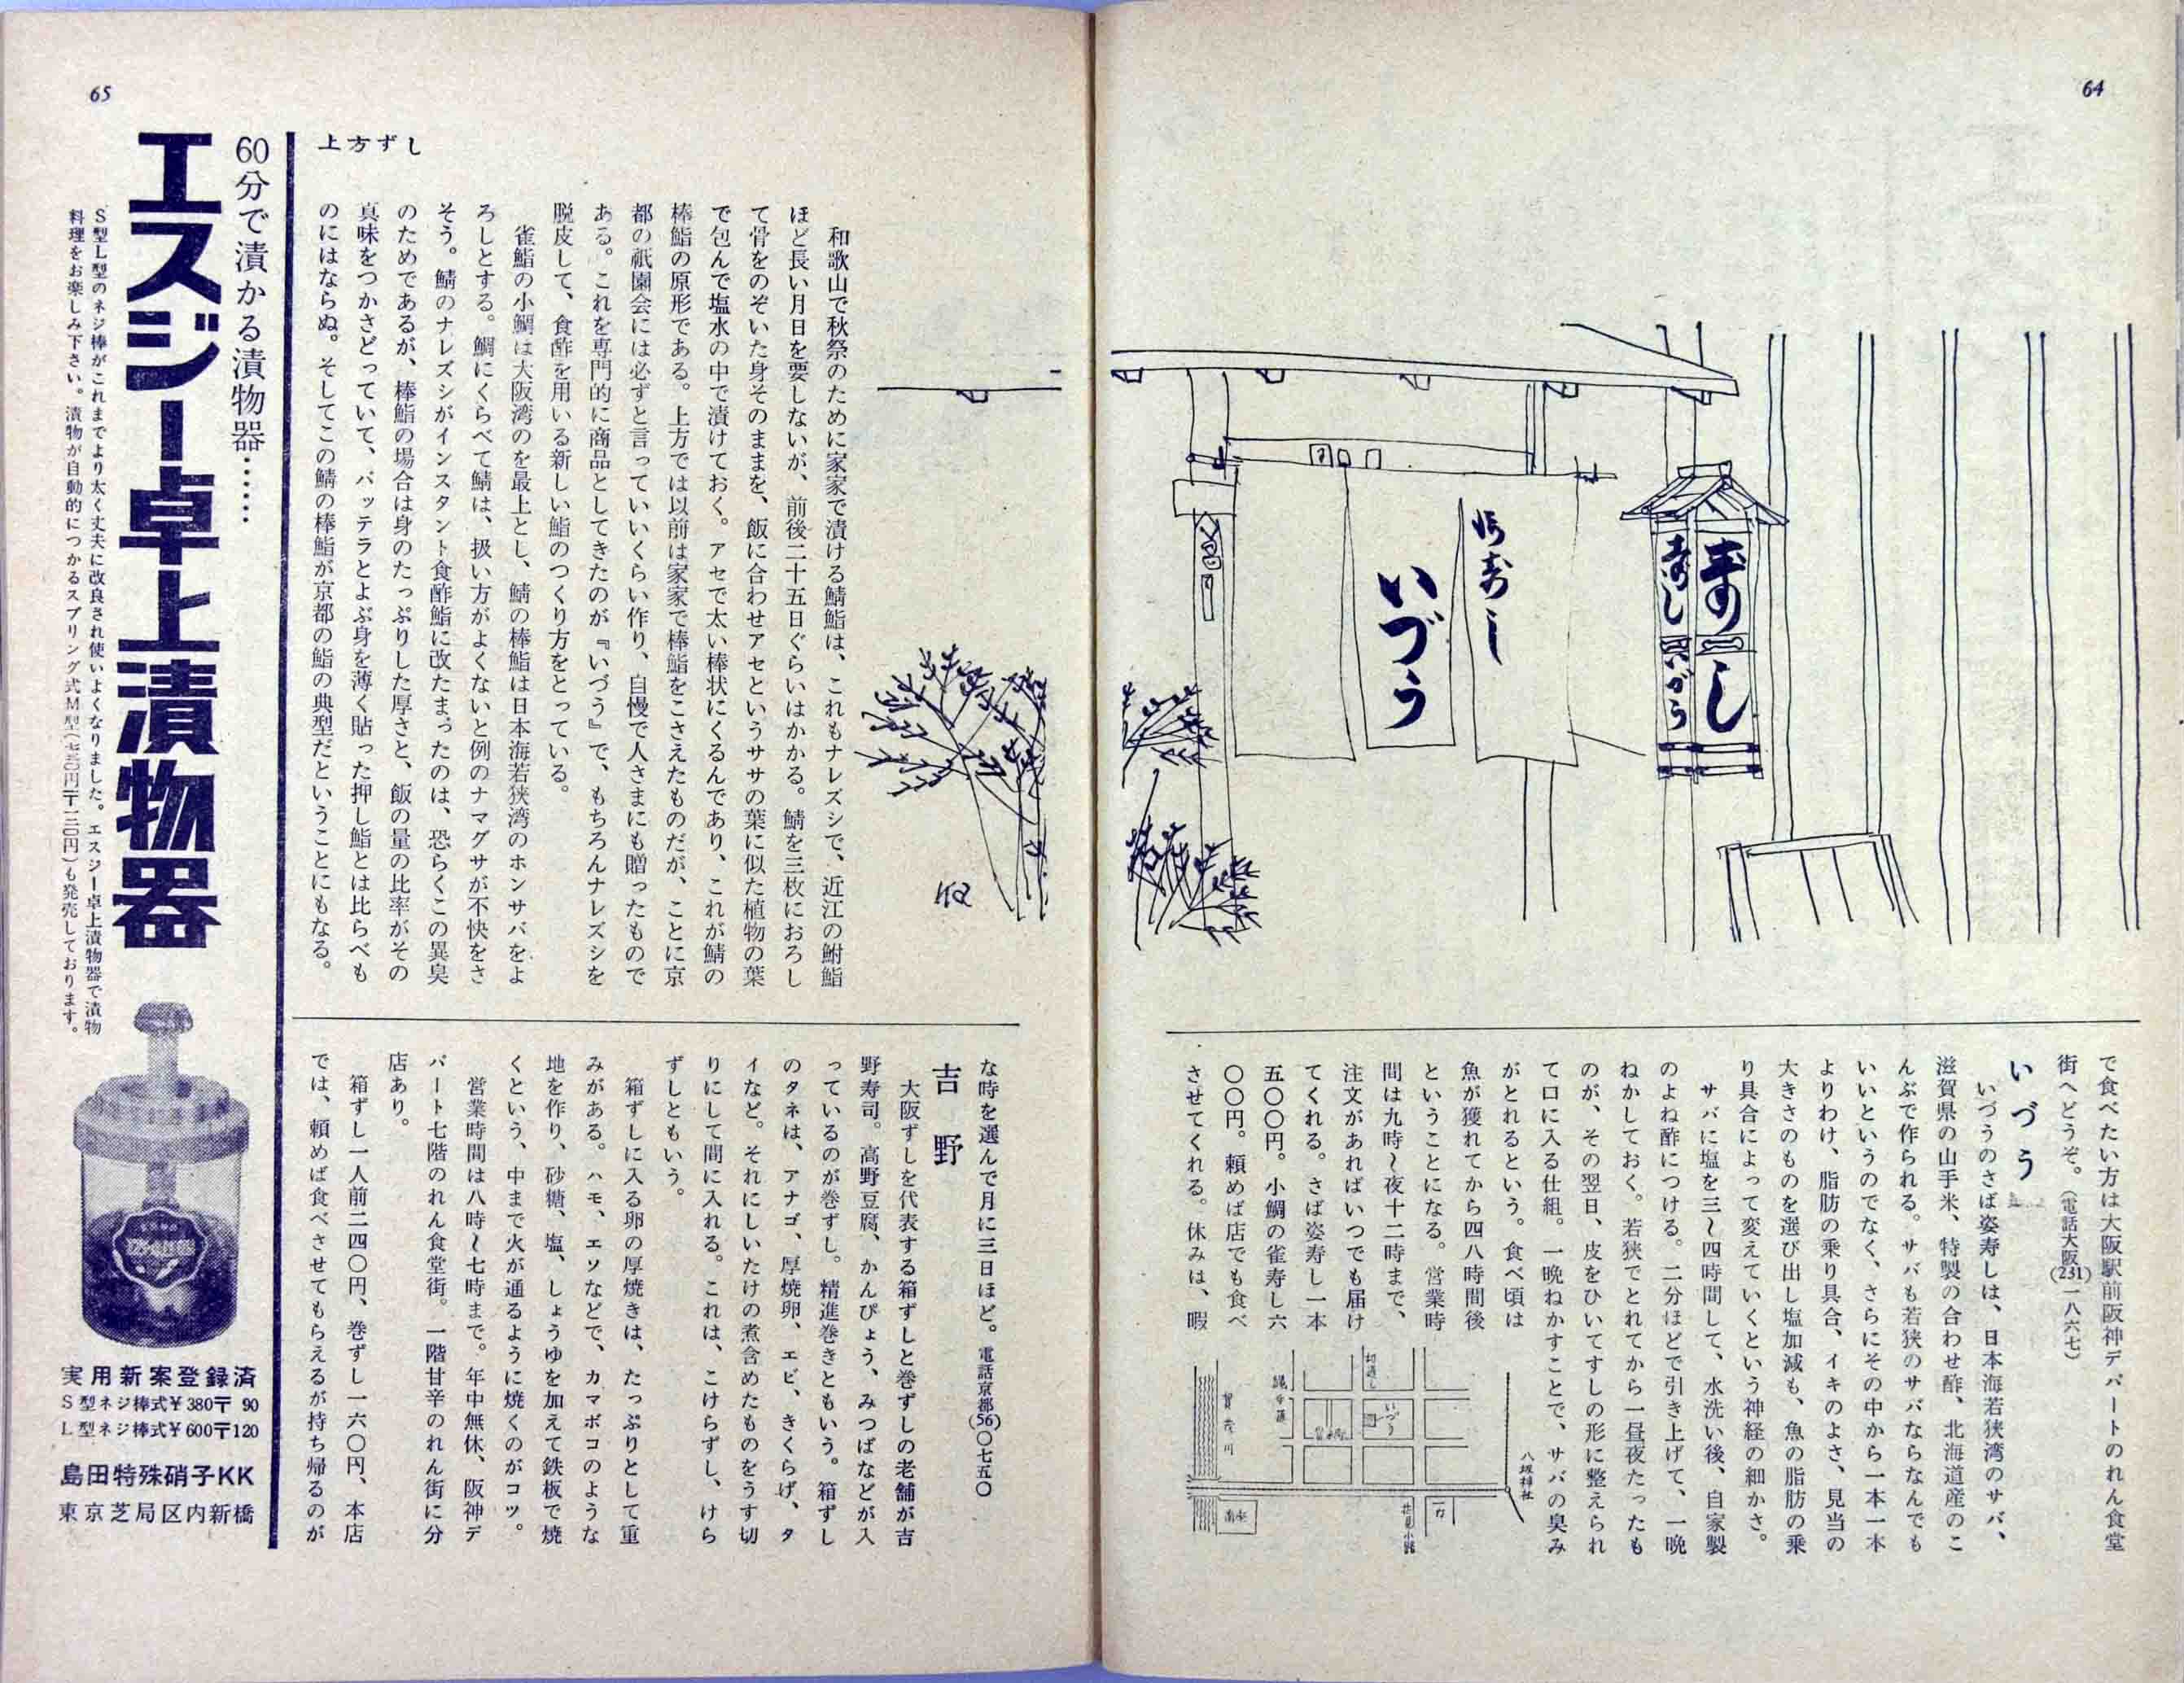 64
寿し
寿し
いづう
いづう
で食べたい方は大阪駅前阪神デパートのれん食堂
街へどうぞ。(電話大阪(231)一八六七)
いづう
いづうのさば姿寿しは、日本海若狭湾のサバ、
滋賀県の山手米、特製の合わせ酢、北海道産のこ
んぶで作られる。サバも若狭のサバならなんでも
いいというのでなく、さらにその中から一本一本
よりわけ、脂肪の乗り具合、イキのよさ、見当の
大きさのものを選び出し塩加減も、魚の脂肪の乗
り具合によって変えていくという神経の細かさ。
サバに塩を三〜四時間して、水洗い後、自家製
のよね酢につける。二分ほどで引き上げて、一晩
ねかしておく。若狭でとれてから一昼夜たったも
のが、その翌日、皮をひいてすしの形に整えられ
て口に入る仕組。一晩ねかすことで、サバの臭み
がとれるという。食べ頃は
魚が獲れてから四八時間後
ということになる。営業時
間は九時〜夜十二時まで、
注文があればいつでも届け
てくれる。さば姿寿し一本
五〇〇円。小鯛の雀寿し六
〇〇円。頼めば店でも食べ
させてくれる。休みは、暇
八坂神社
切通し
いづう
縄手通
賀茂川
花見小路
一力
南座
65
上方ずし
和歌山で秋祭のために家家で漬ける鯖鮨は、これもナレズシで、近江の鮒鮨
ほど長い月日を要しないが、前後二十五日ぐらいはかかる。鯖を三枚におろし
て骨をのぞいた身そのままを、飯に合わせアセというササの葉に似た植物の葉
で包んで塩水の中で漬けておく。アセで太い棒状にくるんであり、これが鯖の
棒鮨の原形である。上方では以前は家家で棒鮨をこさえたものだが、ことに京
都の祇園会には必ずと言っていいくらい作り、自慢で人さまにも贈ったもので
ある。これを専門的に商品としてきたのが『いづう』で、もちろんナレズシを
脱皮して、食酢を用いる新しい鮨のつくり方をとっている。
雀鮨の小鯛は大阪湾のを最上とし、鯖の棒鮨は日本海若狭湾のホンサバをよ
ろしとする。鯛にくらべて鯖は、扱い方がよくないと例のナマグサが不快をさ
そう。鯖のナレズシがインスタント食酢鮨に改たまったのは、恐らくこの異臭
のためであるが、棒鮨の場合は身のたっぷりした厚さと、飯の量の比率がその
真味をつかさどっていて、バッテラとよぶ身を薄く貼った押し鮨とは比らべも
のにはならぬ。そしてこの鯖の棒鮨が京都の鮨の典型だということにもなる。
な時を選んで月に三日ほど。電話京都(56)〇七五〇
吉野
大阪ずしを代表する箱ずしと巻ずしの老舗が吉
野寿司。高野豆腐、かんぴょう、みつばなどが入
っているのが巻ずし。精進巻きともいう。箱ずし
のタネは、アナゴ、厚焼卵、エビ、きくらげ、タ
イなど。それにしいたけの煮含めたものをうす切
りにして間に入れる。これは、こけらずし、けら
ずしともいう。
箱ずしに入る卵の厚焼きは、たっぷりとして重
みがある。ハモ、エソなどで、カマボコのような
地を作り、砂糖、塩、しょうゆを加えて鉄板で焼
くという、中まで火が通るように焼くのがコツ。
営業時間は八時〜七時まで。年中無休、阪神デ
パート七階のれん食堂街。一階甘辛のれん街に分
店あり。
箱ずし一人前二四〇円、巻ずし一六〇円、本店
では、頼めば食べさせてもらえるが持ち帰るのが
60分で漬かる漬物器……
エスジー卓上漬物器
S型L型のネジ棒がこれまでより太く丈夫に改良され使いよくなりました。エスジー卓上漬物器で漬物
料理をお楽しみ下さい。漬物が自動的につかるスプリング式M型(七五〇円〒一二〇円)も発売しております。
実用新案登録済
S型ネジ棒式¥380〒90
L型ネジ棒式¥600〒120
島田特殊硝子KK
東京芝局区内新橋